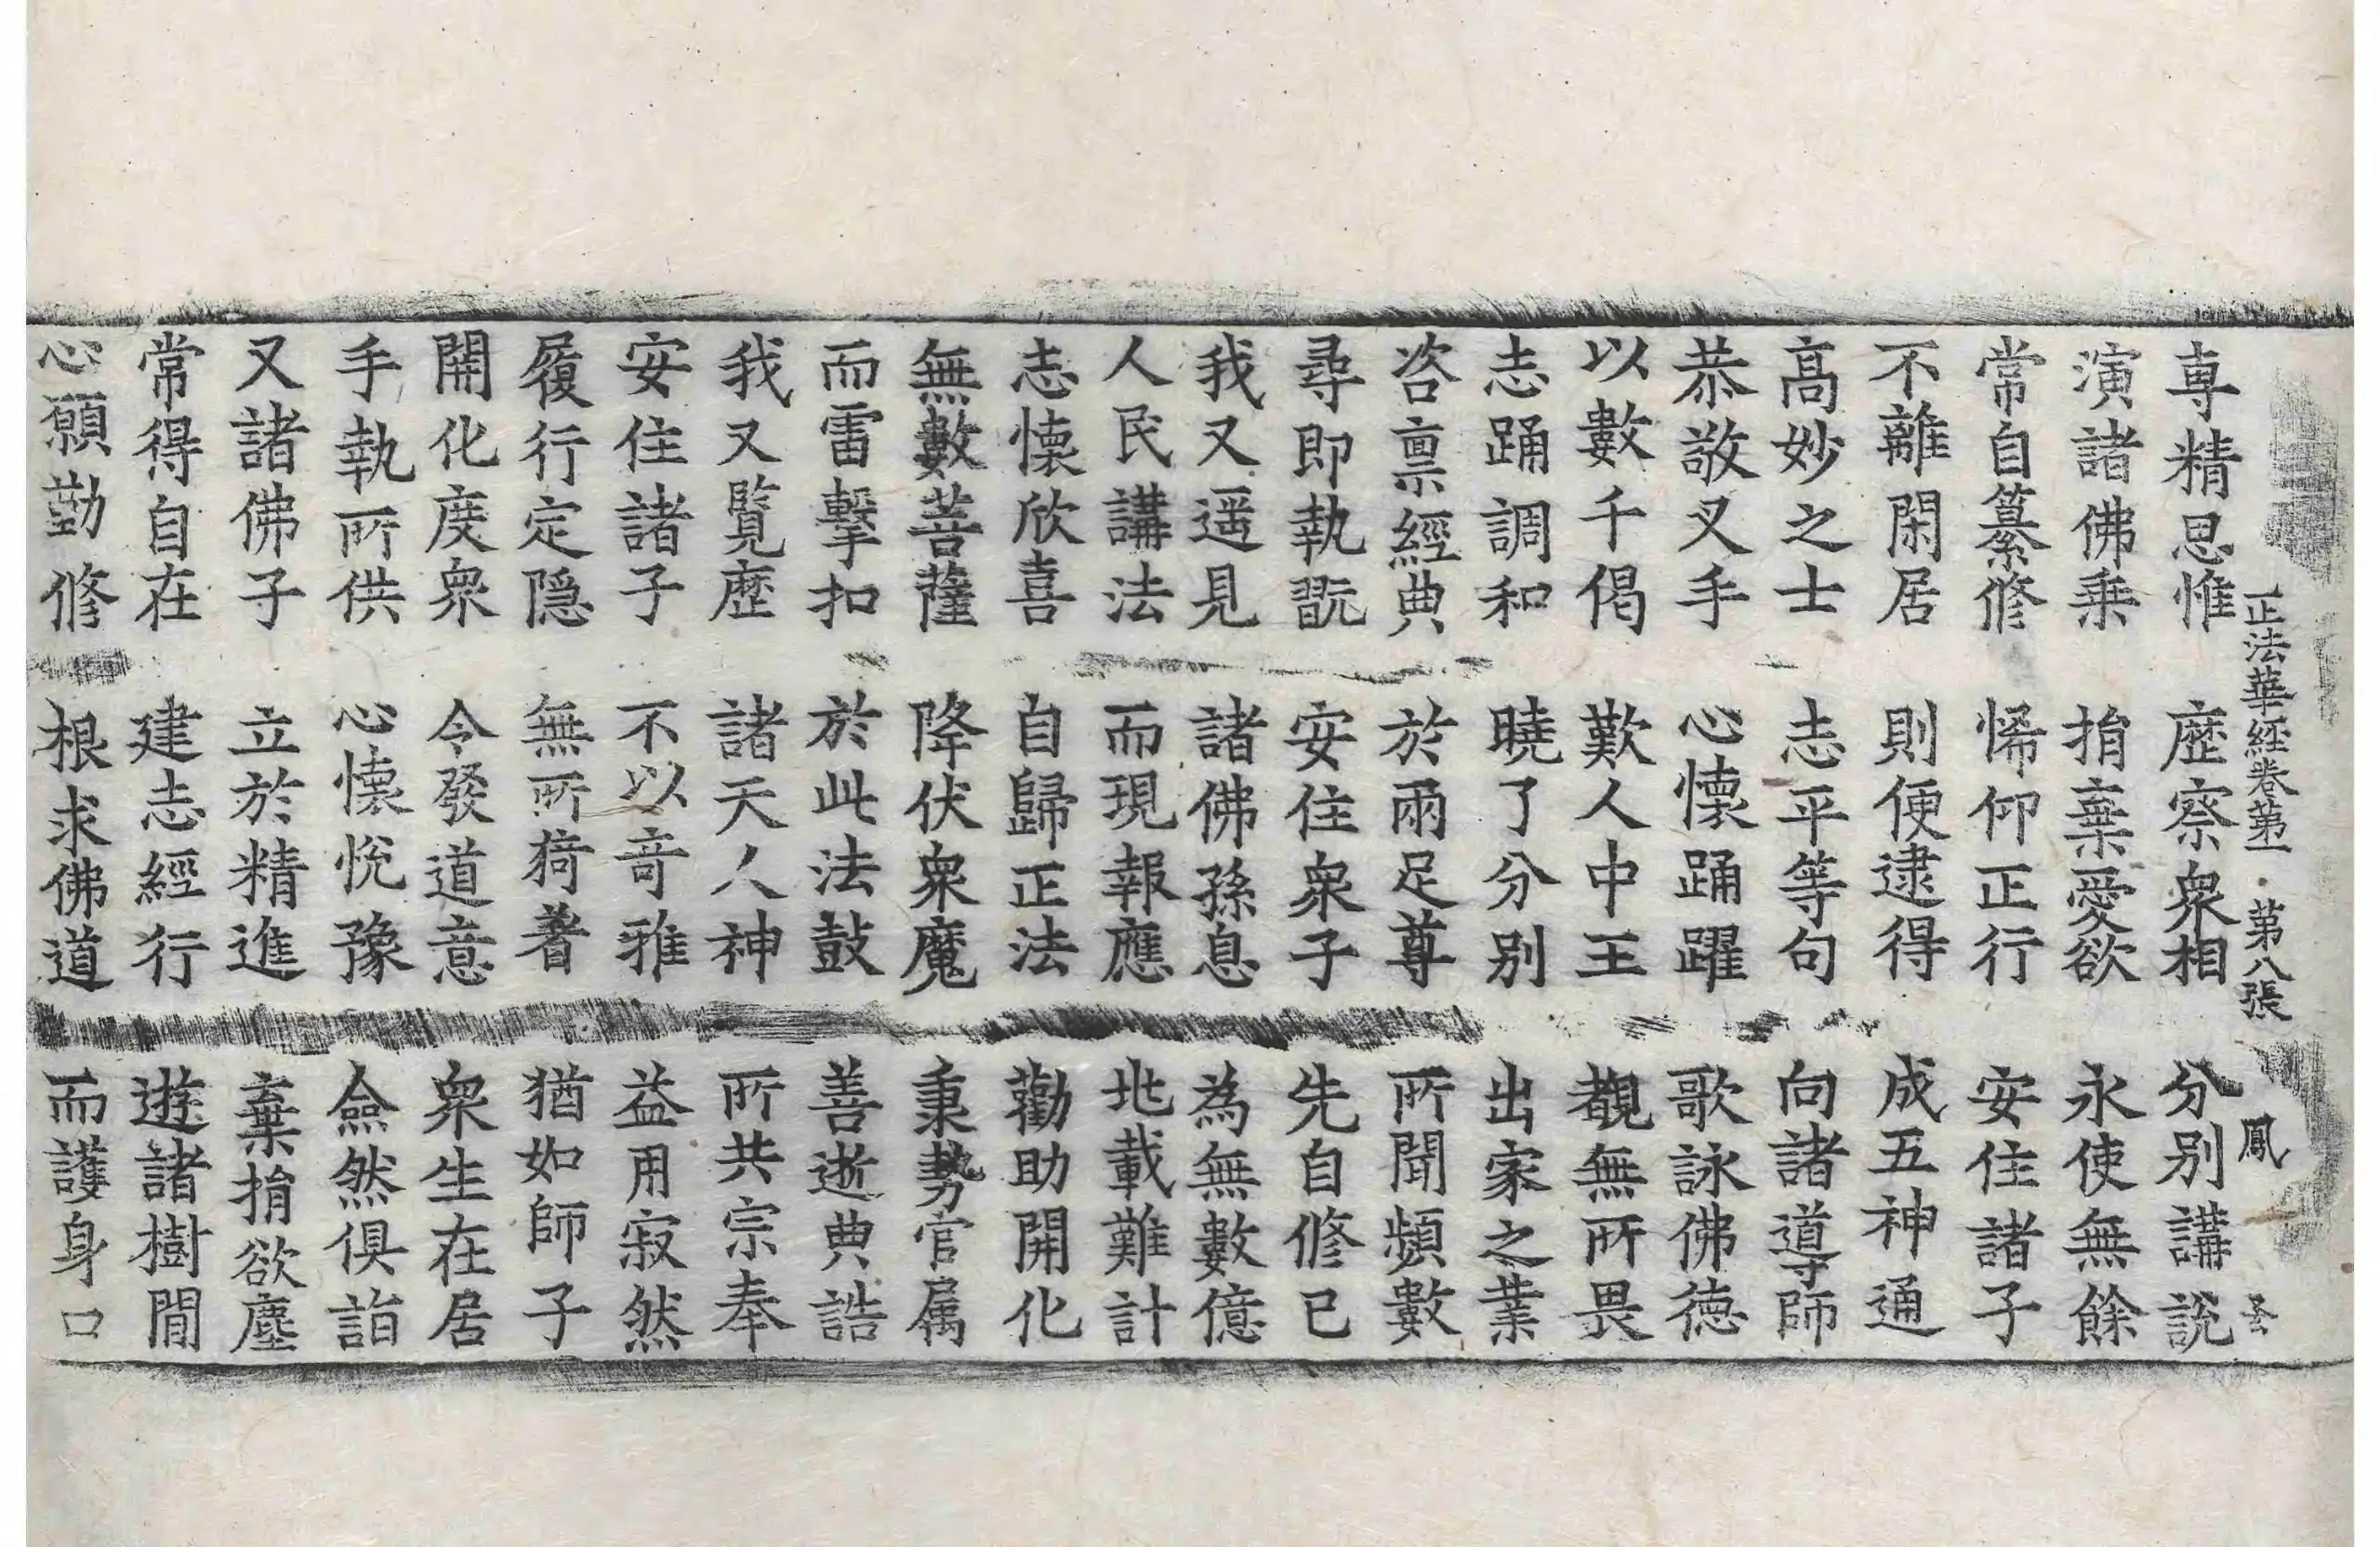 正法華經卷第一 第八張 鳳
專精思惟 歷察衆相 分別講說
演諸佛乘 捐棄愛欲 永使無餘
常自纂修 悕仰正行 安住諸子
不離閑居 則便逮得 成五神通
高妙之士 志平等句 向諸導師
恭敬叉手 心懷踊躍 歌詠佛德
以數千偈 歎人中王 覩無所畏
志踊調和 曉了分別 出家之業
咨禀經典 於兩足尊 所聞頻數
尋即執翫 安住衆子 先自修已
我又遥見 諸佛孫息 為無數億
人民講法 而現報應 地載難計
志懷欣喜 自歸正法 勸助開化
無數菩薩 降伏衆魔 秉勢官属
而雷擊扣 於此法鼓 善逝典誥
我又覧歷 諸天人神 所共宗奉
安住諸子 不以奇雅 益用寂然
履行定隱 無所猗著 猶如師子
開化度衆 令發道意 衆生在居
手執所供 心懷悅豫 僉然俱詣
又諸佛子 立於精進 棄捐欲塵
常得自在 建志經行 遊諸樹間
心願勤修 根求佛道 而護身口